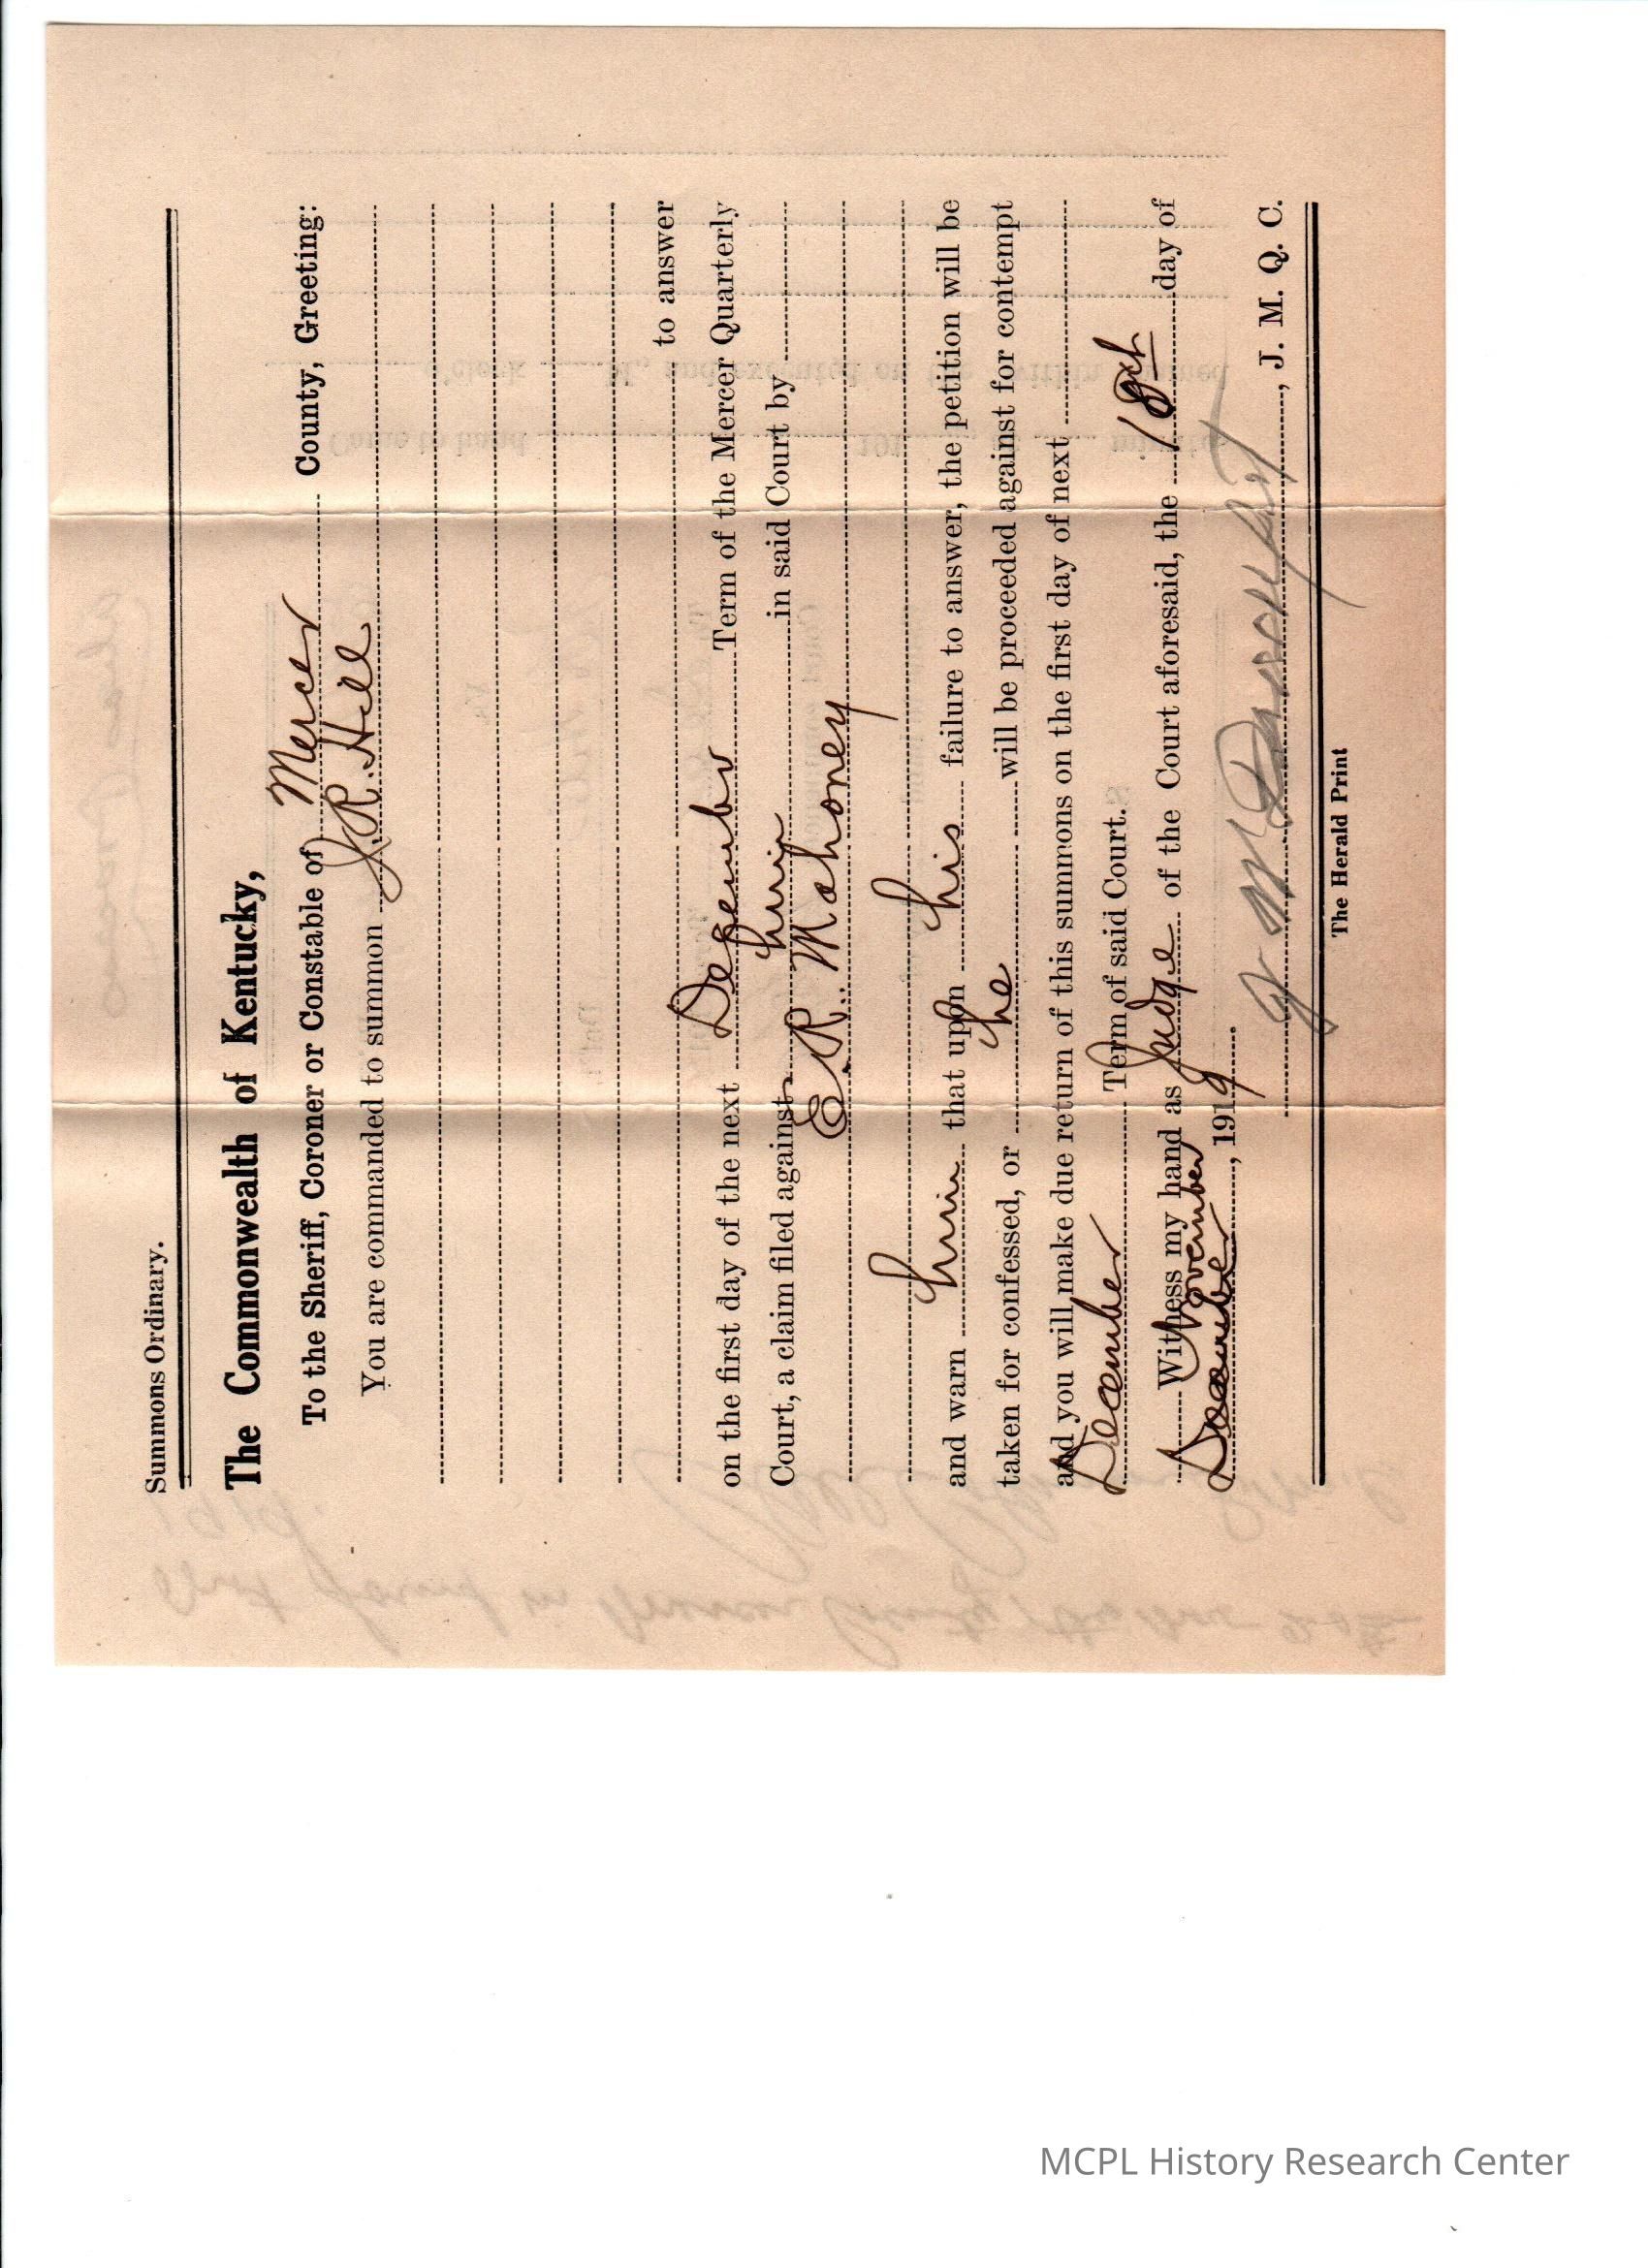 Summons Ordinary.
The Commonwealth of Kentucky,
To the Sheriff, Coroner or Constable of Mercer County, Greeting:
You are commanded to summon J.R. Hill
to answer
on the first day of the next December Term of the Mercer Quarterly
Court, a claim filed against him in said Court by
E. R. Mahoney
and warn him that upon his failure to answer, the petition will be
taken for confessed, or he will be proceeded against for contempt
and you will make due return of this summons on the first day of next
December Term of said Court.
Witness my hand as Judge of the Court aforesaid, the 18th day of
November
December, 1919
J. M. Q. C.
The Herald Print
MCPL History Research Center